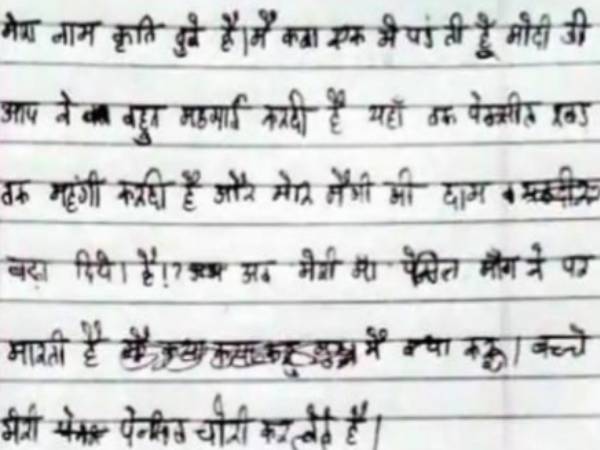 मेरा नाम कृति दुबे है। मै कक्षा एक मे पडती हूँ मोदी जी
आप ने बहुत महगाई करदी है यहाँ तक पेनसील रबड
तक महंगी करदी है और मेरि मैगी की दाम
बढा दिये। है।? अब मेरी मा पेंसिल माँग ने पर
मारती है मै क्या करू। बच्चे
मेरी पेनसिल चोरी कर लेते है।